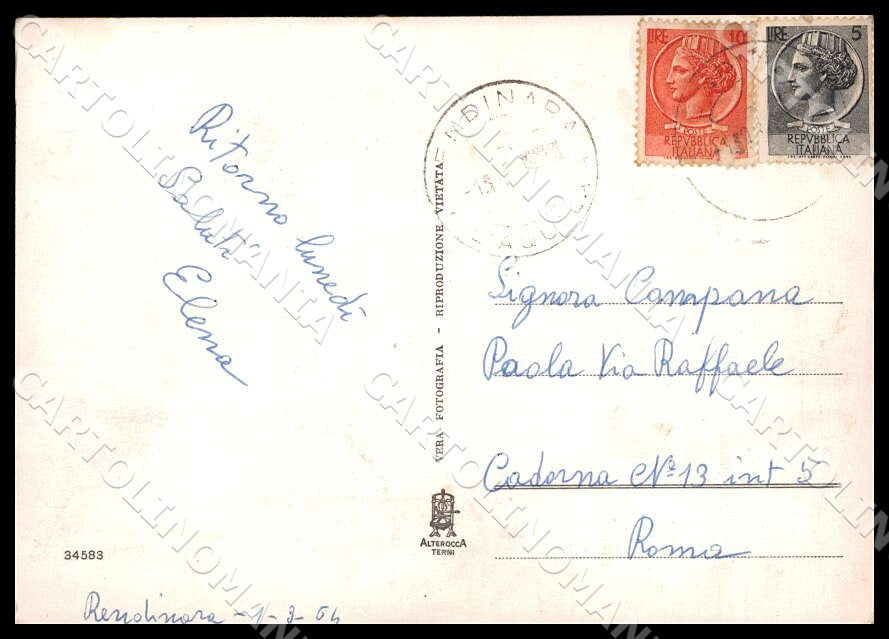 LIRE 10
POSTE
REPVBBLICA
ITALIANA
LIRE 5
POSTE
REPVBBLICA
ITALIANA
NDINARA
Ritorno lunedì
Saluti
Elena
VERA FOTOGRAFIA - RIPRODUZIONE VIETATA
Signora Campana
Paola Via Raffaele
Cadorna Nº 13 int 5
Roma
ALTEROCCA
TERNI
34583
Rendinara - 1-3-64
CARTOLINOMANIA
CARTOLINOMANIA
CARTOLINOMANIA
CARTOLINOMANIA
CARTOLINOMANIA
CARTOLINOMANIA